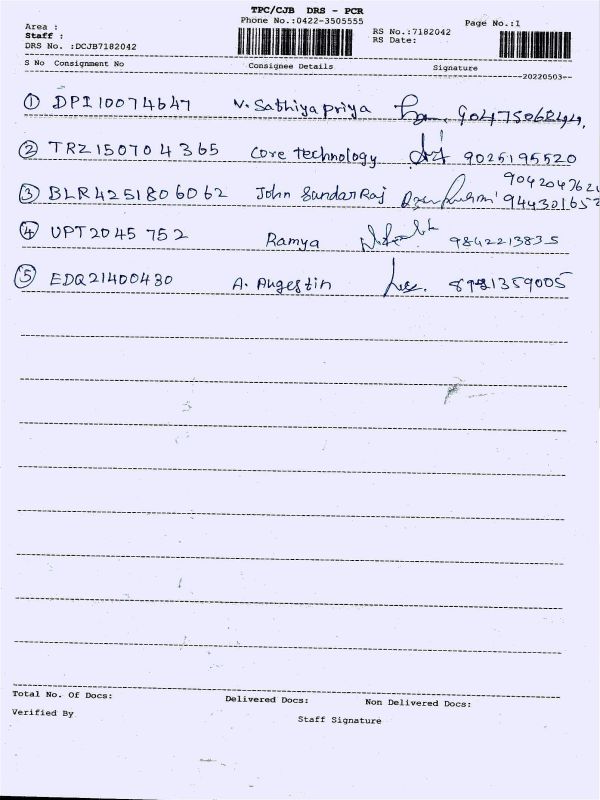 TPC/CJB DRS - PCR
Phone No.:0422-3505555
Page No.:1
Area :
Staff :
DRS No. :DCJB7182042
RS No.:7182042
RS Date:
S No Consignment No Consignee Details Signature
20220503--
① DPI10074647 N. Sathiyapriya
② TRZ150704365 Core technology 9025195520
③ BLR4251806062 John SundarRaj
④ UPT2045752 Ramya 9842213835
⑤ EDQ21400430 A. Augestin
Total No. Of Docs: Delivered Docs: Non Delivered Docs:
Verified By
Staff Signature